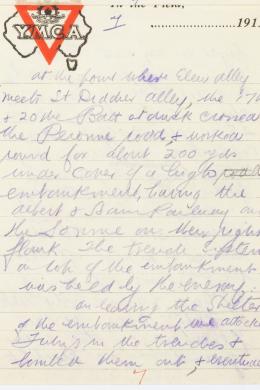 In the Field,
7 ........................191
Y.M.C.A
at the point where Elew alley
meets St Didcher alley, the 17th
& 20th Batt at dusk crossed
the Peronne road, & worked
round for about 200 yds
under cover of a high
embankment, having the
Albert & Baum Railway on
the Somme on their right
flank. The trench system
on top of the embankment
was held by the enemy.
on leaving the shelter
of the embankment we attacked
Fritz's in the trenches &
bombed them out, & eventually
7